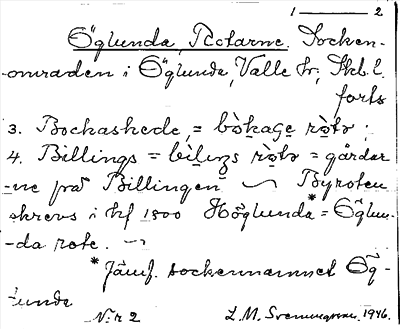 1 — 2
Öglunda, Rotarne. Socken-
-områden i Öglunda, Valle hr, Skb.l.
forts
3. Bockaskede, = bòkage ròtə ;
4. Billings = bìlings ròtə = gårdar
-ne på Billingen ~ Byroten
skrevs i kf 1500 Höglunda* = Öglun-
-da rote. ~
* Jämf. sockennamnet Ög-
-lunda
N:r 2 L. M. 1946.